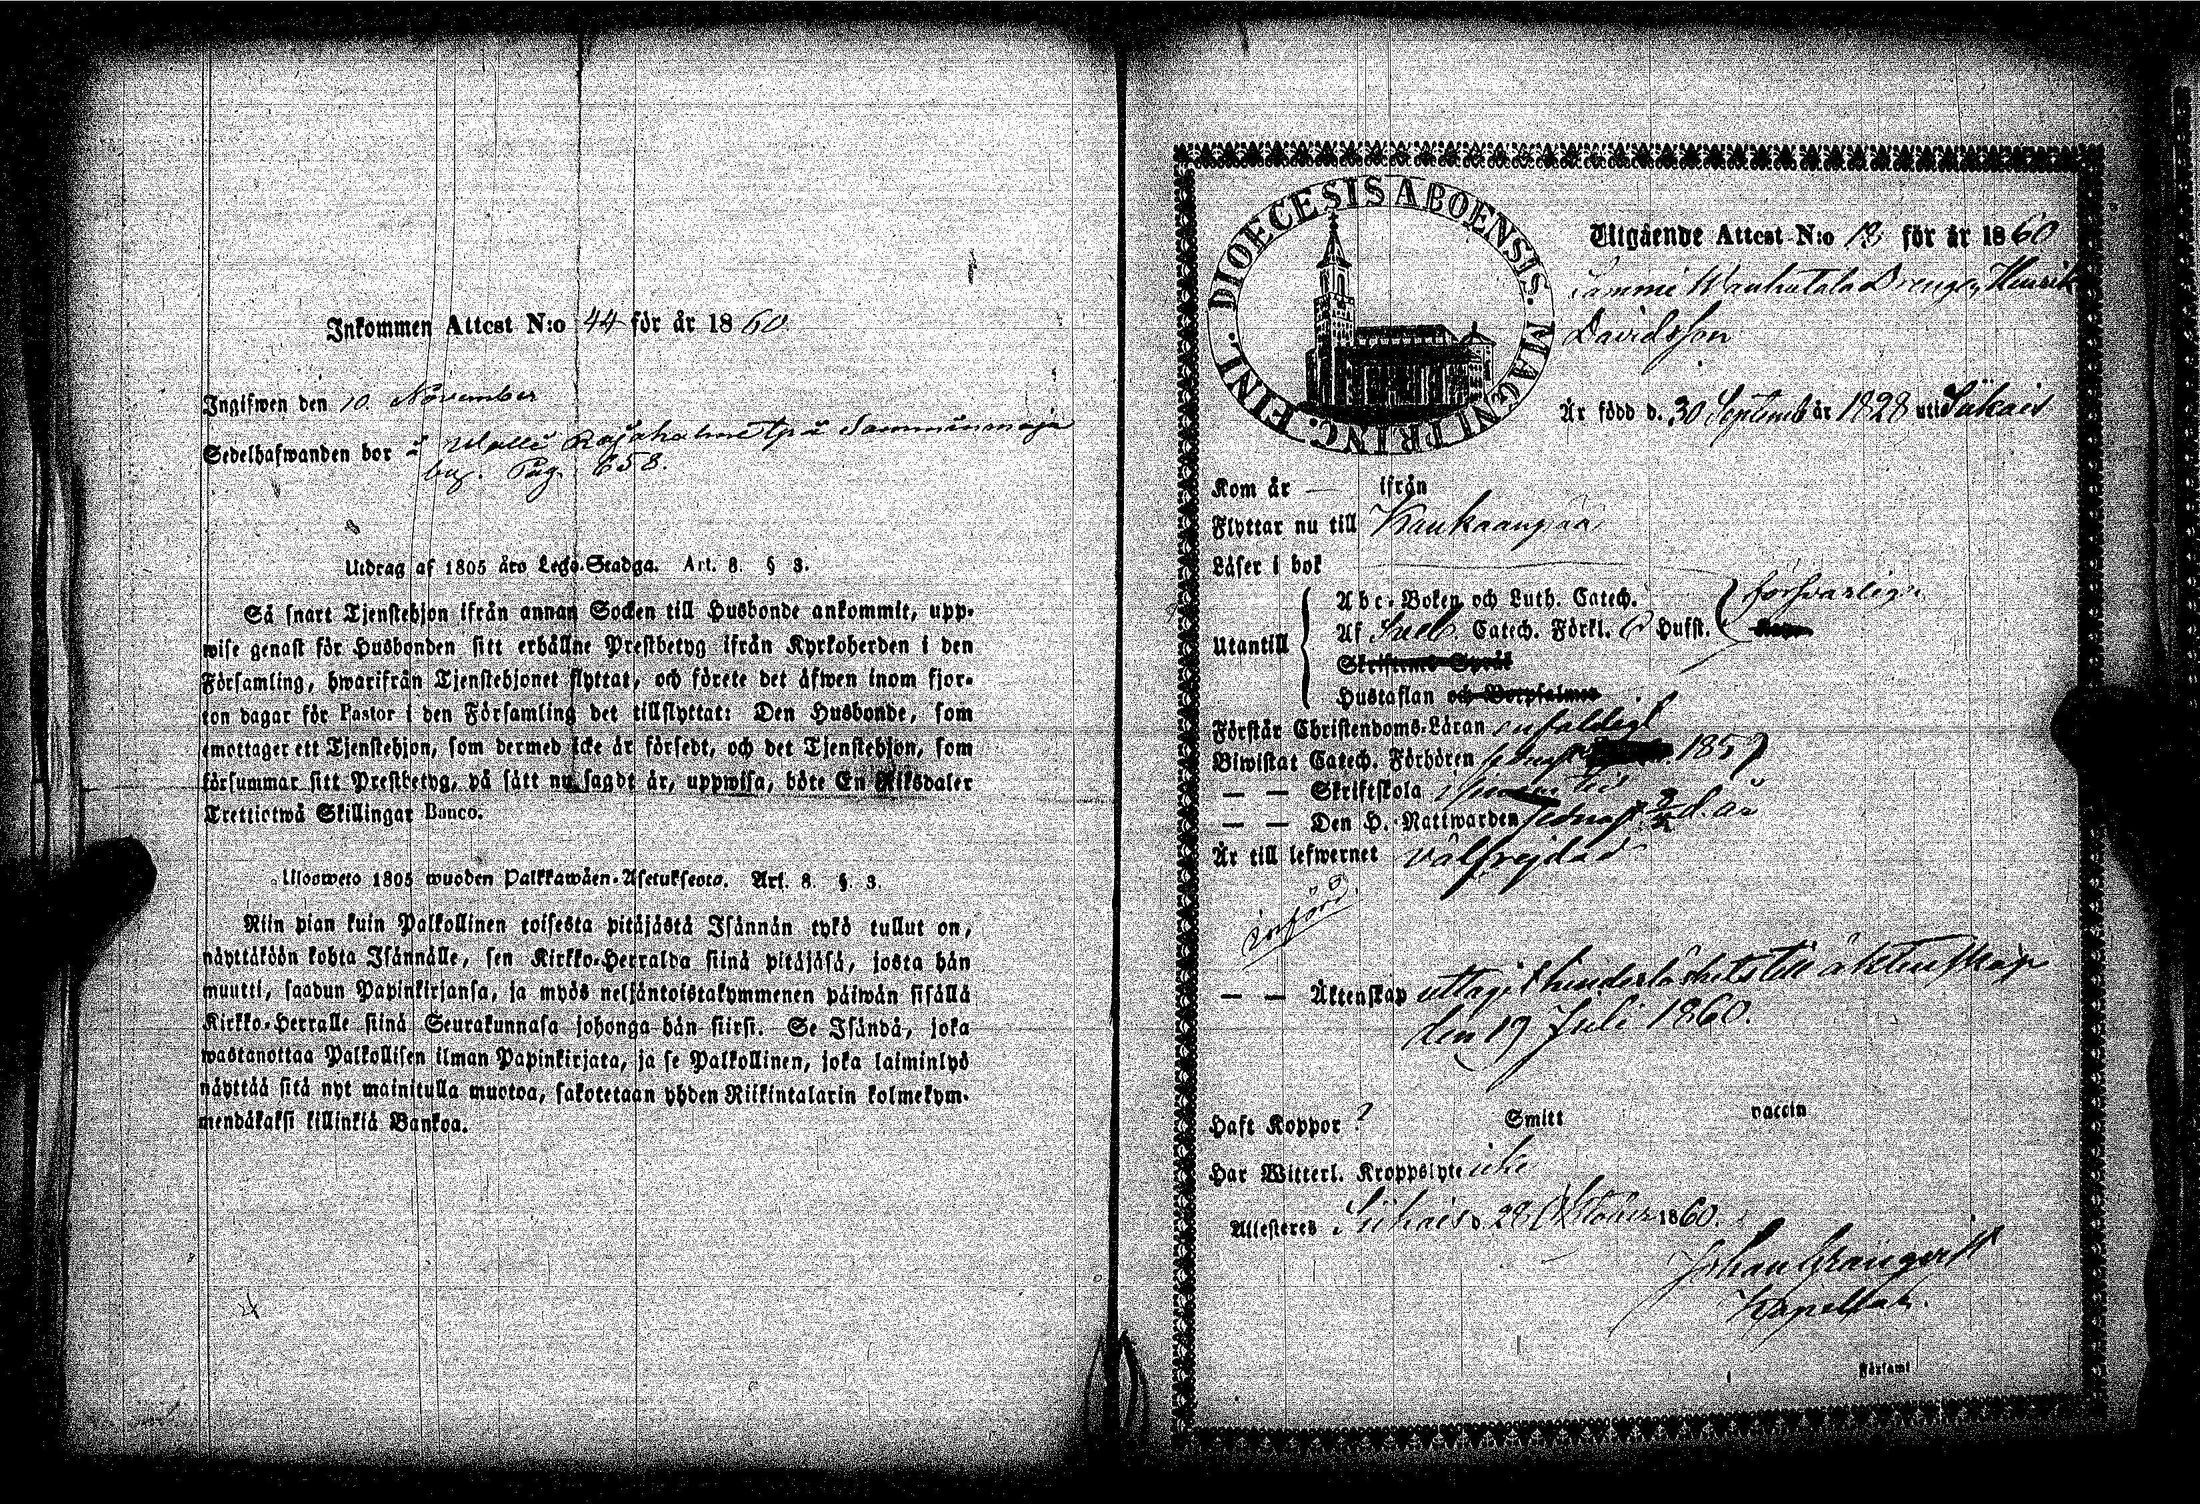 Inkommen Attest N:o 44 för år 1860
Ingifwen den 10 November
Sedelhafwanden bor i
by. Pag. 658.
Utdrag af 1805 års Lego-Stadga. Art. 8 § 3.
Så snart Tjenstehjon ifrån annan Socken till Husbonde ankommit, upp-
wise genast för Husbonden sitt erhållne Prestbetyg ifrån Kyrkoherden i den
Församling, hwarifrån Tjenstehjonet flyttat, och förete det äfwen inom fjor-
ton dagar för Pastor i den Församling det tillflyttat: Den Husbonde, som
emottager ett Tjenstehjon, som dermed icke är försedt, och det Tjenstehjon, som
försummar sitt Prestbetyg, på sätt nu sagdt är, uppwisa, böte En Riksdaler
Trettiotwå Skillingar Banco.
Ulosweto 1805 wuoden Palkkawäen-Asetuksesta. Art. 8. §. 3.
Niin pian kuin Palkollinen toisesta pitäjästä Isännän tykö tullut on,
näyttäköön kohta Isännälle, sen Kirkko-Herralda siinä pitäjäsä, josta hän
muutti, saadun Papinkirjansa, ja myös neljäntoistakymmenen päiwän sisällä
Kirkko-Herralle siinä Seurakunnasa johonga hän siirsi. Se Isändä, joka
wastanottaa Palkollisen ilman Papinkirjata, ja se Palkollinen, joka laiminlyö
näyttää sitä nyt mainitulla muotoa, sakotetaan yhden Riikintalarin kolmekym-
mendäkaksi killinkiä Bankoa.
DIOECESIS ABOENSIS. MAGNI PRINC. FINL.
Utgående Attest N:o 13 för år 1860
Drengen Henrik
Davidsson
Är född d. 30 Septemb år 1828 uti Siikais
Kom år — ifrån
Flyttar nu till Kankaanpää
Läser i bok
Utantill
Abc-Boken och Luth. Catech. försvarligt
Af Sveb. Catech. Förkl. Husst.
Skriftens Språk
Hustaflan och Botpsalmer
Förstår Christendoms-Läran enfaldigt
Biwistat Catech. Förhören sednast 1857
— — Skriftskola
— — Den H. Nattwarden sednast d. år
Är till lefwernet välfrejdad
införd
— — Äktenskap uttagit hinderslöshets till äktenskap
den 19 Juli 1860.
Haft Koppor ? Smitt vaccin
Har Witterl. Kroppslyte icke
Attesteras Siikais d. 28 Oktober 1860.
Johan
Kapellan.
Församl